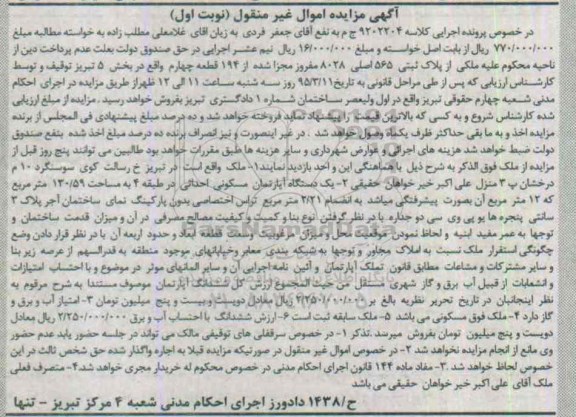 آگهی مزایده اموال غیر منقول (نوبت اول)
در خصوص پرونده اجرایی کلاسه ۹۲۰۲۲۰۴ ج م به نفع آقای جعفر فردی به زیان آقای غلامعلی مطلب زاده به خواسته مطالبه مبلغ
۷۷۰/۰۰۰/۰۰۰ ریال از بابت اصل خواسته و مبلغ ۱۶/۰۰۰/۰۰۰ ریال نیم عشر اجرایی در حق صندوق دولت بعلت عدم پرداخت دین از
ناحیه محکوم علیه ملکی از پلاک ثبتی ۵۶۵ اصلی ۸۰۲۸ مفروز مجزا شده از ۱۹۴ قطعه چهارم واقع در بخش ۵ تبریز توقیف و توسط
کارشناس ارزیابی که پس از طی مراحل قانونی به تاریخ ۹۵/۳/۱۱ روز سه شنبه ساعت ۱۱ الی ۱۲ ظهر از طریق مزایده در اجرای احکام
مدنی شعبه چهارم حقوقی تبریز واقع در اول ولیعصر ساختمان شماره ۱ دادگستری تبریز بفروش خواهد رسید . مزایده از مبلغ ارزیابی
شده کارشناس شروع و به کسی که بالاترین قیمت را پیشنهاد نماید فروخته خواهد شد و ده درصد مبلغ پیشنهادی فی المجلس از برنده
مزایده اخذ و به ما بقی حداکثر ظرف یکماه وصول خواهد شد . در غیر اینصورت و نیز انصراف برنده ده درصد مبلغ اخذ شده بنفع صندوق
دولت ضبط خواهد شد هزینه های اجرائی و عوارض شهرداری و سایر هزینه ها طبق مقررات خواهد بود طالبین می توانند پنج روز قبل از
مزایده از ملک فوق الذکر به شرح ذیل با هماهنگی این واحد بازدید نمایند۱- ملک واقع است در تبریز خ رسالت کوی سوسنگرد ۱۰ م
درخشان پ ۳ منزل علی اکبر خیر خواهان حقیقی ۲- یک دستگاه آپارتمان مسکونی احداثی در طبقه ۴ به مساحت ۱۳۰/۵۹ متر مربع
که ۱۲ متر مربع آن بصورت پیشرفتگی میباشد به انضمام ۲/۲۱ متر مربع تراس اختصاصی بدون پارکینگ نمای ساختمان آجر پلاک ۳
سانتی پنجره ها یو پی وی سی دو جداره با در نظر گرفتن نوع بنا و کمیت و کیفیت مصالح مصرفی در آن و میزان قدمت ساختمان و
توجها به عمر مفید ابنیه و لحاظ نمودن موقعیت محل و میزان مرغوبیت وسعت قطعه و ابعاد و حدود اربعه آن با در نظر قرار دادن وضع
چگونگی استقرار ملک نسبت به املاک مجاور و توجها به شبکه بندی معابر و خیابانهای موجود منطقه به قدرالسهم از عرصه زیر بنا
و سایر مشترکات و مشاعات مطابق قانون تملک آپارتمان و آئین نامه اجرایی آن و سایر المانهای موثر در موضوع و با احتساب امتیازات
و انشعابات از قبیل آب برق و گاز شهری مستقل من حیث المجموع ارزش کل ششدانگ آپارتمان موصوف مستندا به شرح مرقوم به
نظر اینجانبان در تاریخ تحریر نظریه بالغ بر ۲/۲۵۰/۰۰۰/۰۰۰ ریال معادل دویست و بیست و پنج میلیون تومان ۳- امتیاز آب و برق و
گاز دارد ۴- ملک فوق مسکونی می باشد ۵- ملک سابقه ثبت است ۶- ارزش ششدانگ با احتساب آب و برق ۲/۲۵۰/۰۰۰/۰۰۰ ریال معادل
دویست و پنج میلیون تومان بفروش میرسد .تذکر ۱- در خصوص سرقفلی های توقیفی مالک می تواند در جلسه حضور یابد عدم حضور
وی مانع از انجام مزایده نخواهد شد ۲- در خصوص اموال غیر منقول در صورتیکه مزایده قبلا به اجاره واگذار شده حق شخص ثالث در این
خصوص لحاظ خواهد شد .۳- مفاد ماده ۱۴۴ قانون اجرای احکام مدنی در خصوص محکوم له خریدار مجری خواهد شد.۴- متصرف فعلی
ملک آقای علی اکبر خیر خواهان حقیقی می باشد
ح/۱۴۳۸ دادورز اجرای احکام مدنی شعبه ۴ مرکز تبریز - تنها